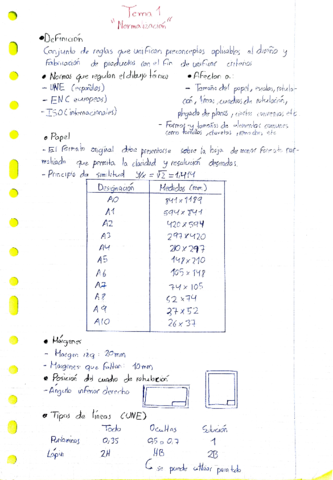 Tema 1
"Normalización"
• Definición
Conjunto de reglas que unifican aplicables al diseño y
fabricación de productos con el fin de unificar criterios
• Normas que regulan el dibujo técnico
- UNE (españolas)
- EN (europeas)
- ISO (internacionales)
• Afectan a
- Tamaño del papel, escalas, rotula-
ción, líneas, cuadros de rotulación,
plegado de planos, etc
- Formas y tamaños de elementos comunes
como tornillos, etc
• Papel
- El formato original debe presentarse sobre la hoja de menor formato nor-
malizado que permita la claridad y resolución deseadas.
- Principio de similitud Y/x = √2 = 1.414
Designación Medidas (mm)
A0 841 x 1189
A1 594 x 841
A2 420 x 594
A3 297 x 420
A4 210 x 297
A5 148 x 210
A6 105 x 148
A7 74 x 105
A8 52 x 74
A9 37 x 52
A10 26 x 37
• Márgenes
- Margen izq = 20mm
- Margenes que faltan 10mm
• Posición del cuadro de rotulación
- Angulo inferior derecho
• Tipos de líneas (UNE)
Todo Ocultas Solución
Rotuladores 0,35 0,5 = 0,7 1
Lápiz 2H HB 2B
se puede utilizar para todo